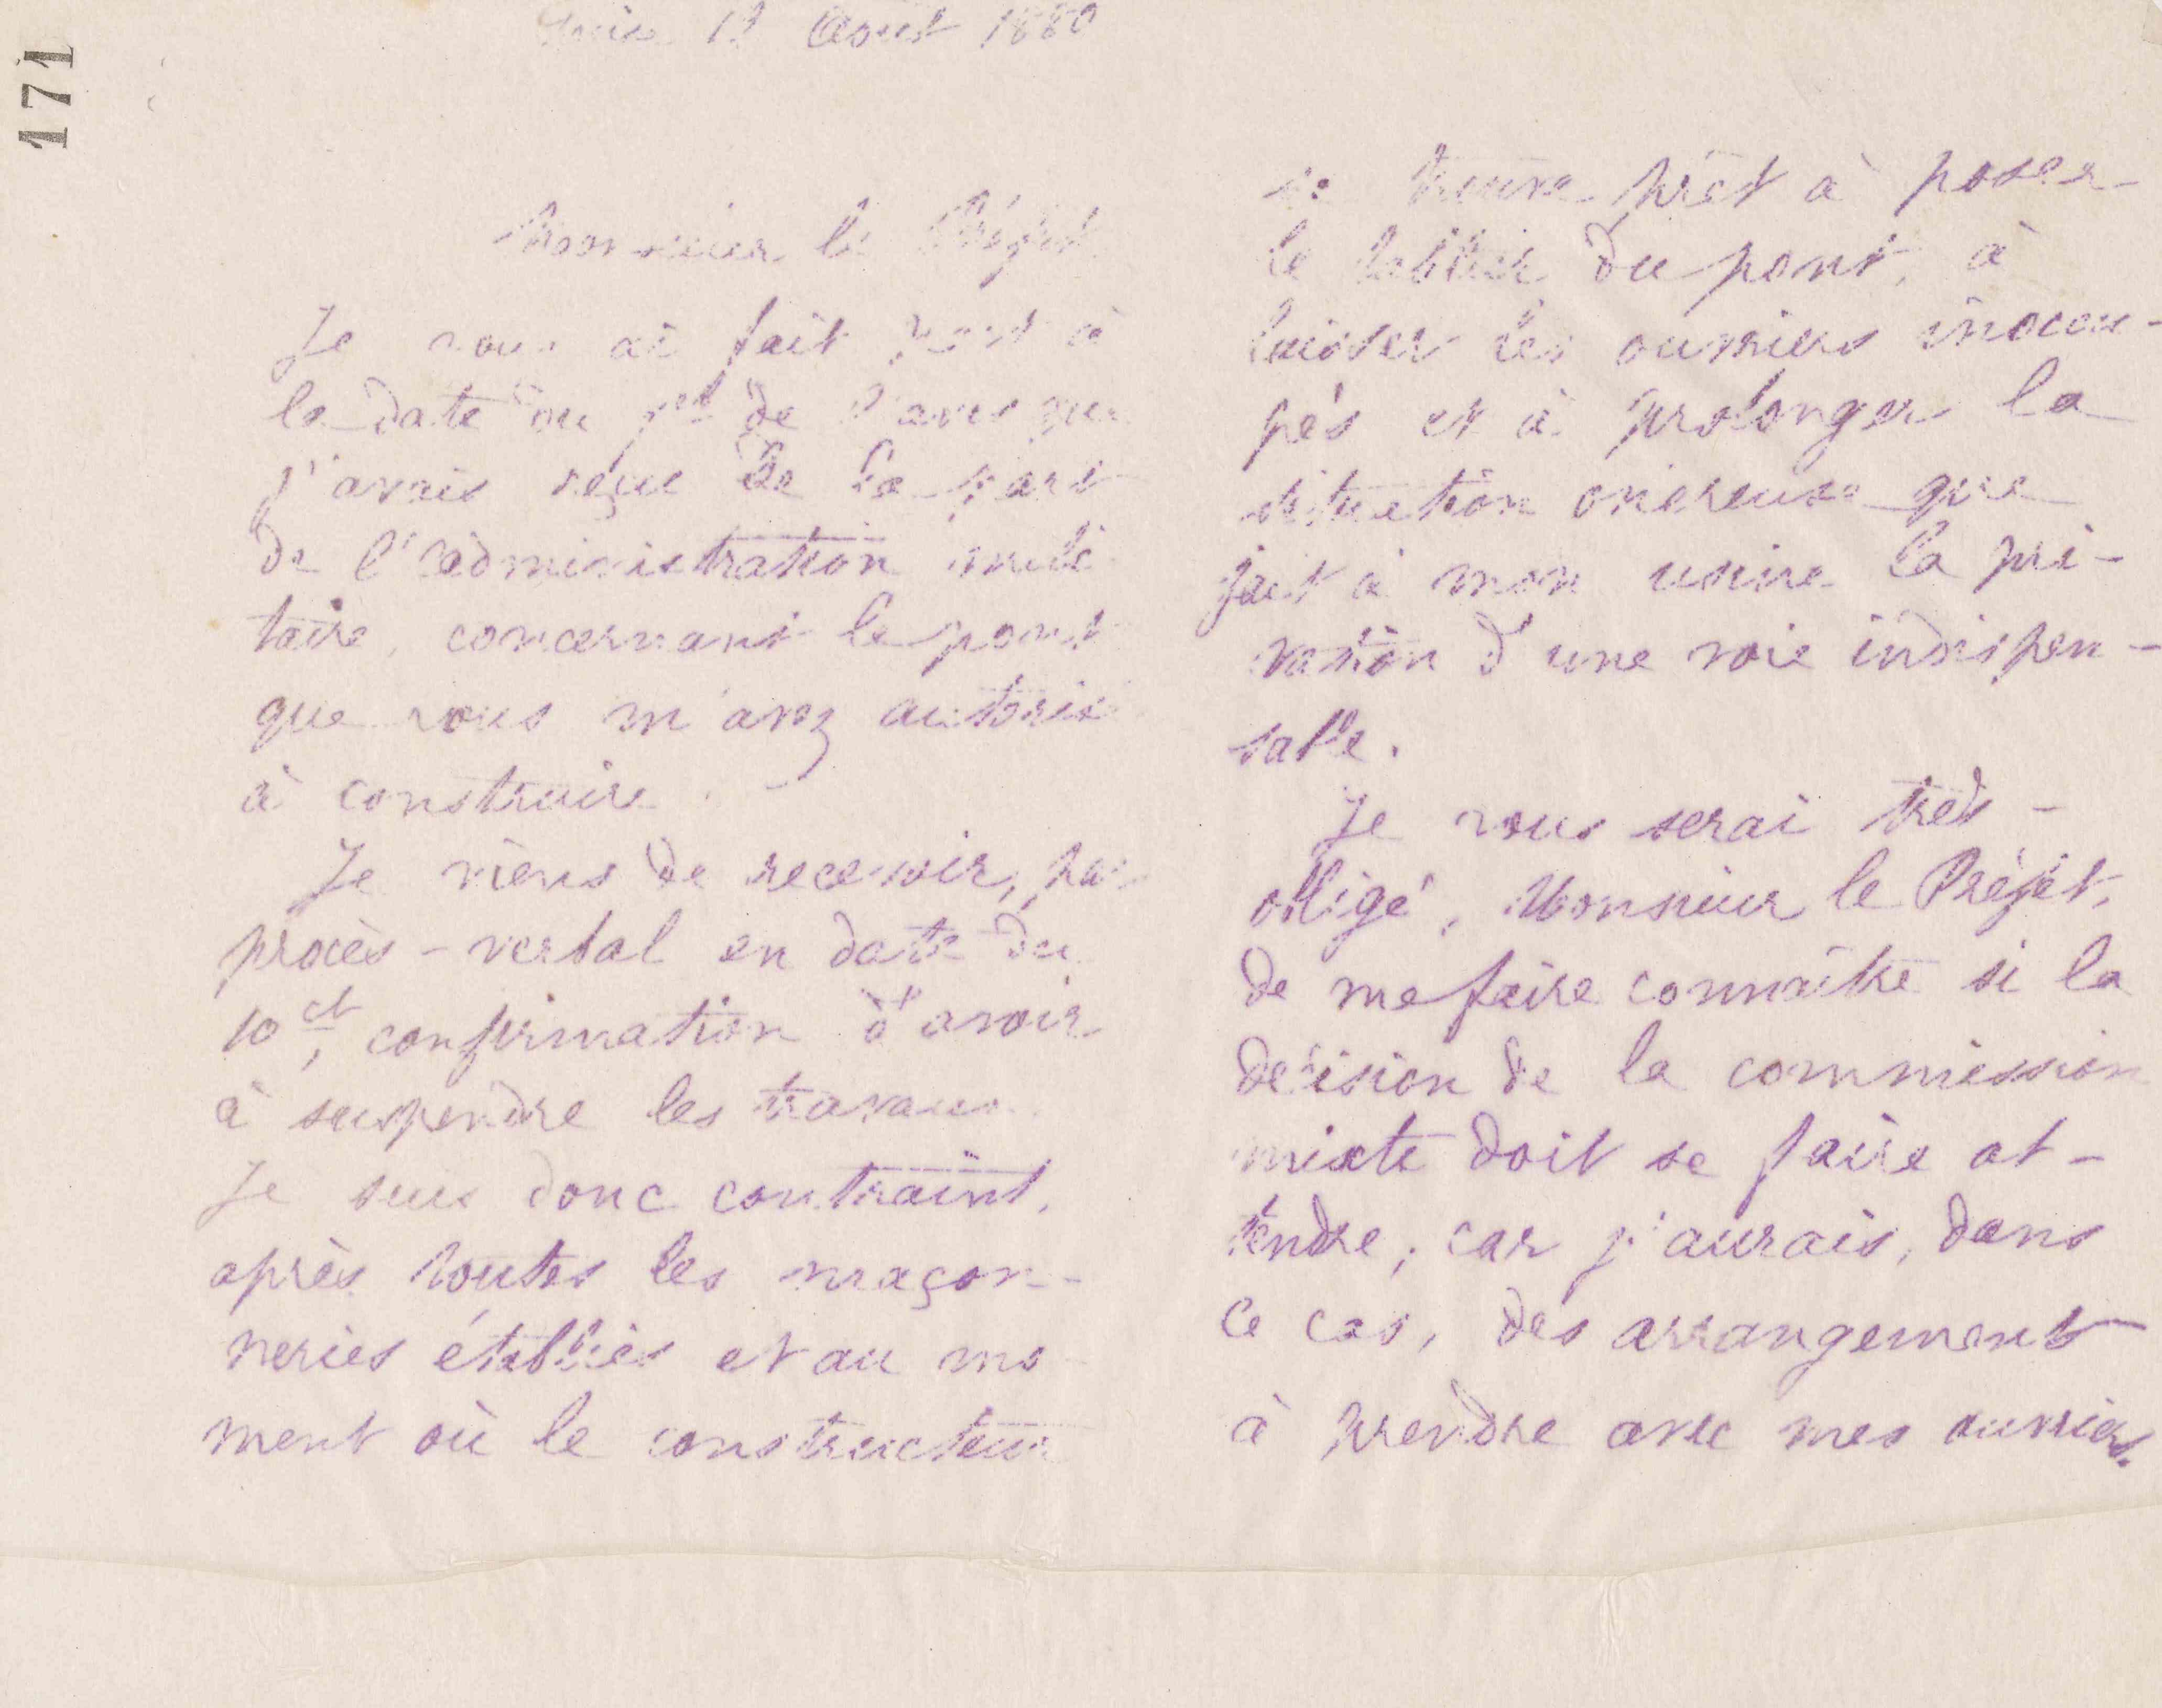 171
Guise 12 Août 1880
Monsieur le Préfet
Je vous ai fait part à
la date du de l'avis que
j'avais reçue de la part
de l'administration mili
taire, concernant le pont
que vous m'avez autorisé
à construire.
Je viens de recevoir, par
procès-verbal en date du
10 ct, confirmation d'avoir
à suspendre les travaux.
Je suis donc contraint,
après toutes les maçon-
neries établies et au mo
ment où le constructeur
se trouve prêt à poser
le tablier du pont, à
laisser les ouvriers inoccu-
pés et à prolonger la
situation onéreuse que
fait à mon usine la pri-
vation d'une voie indispen-
sable.
Je vous serai très-
obligé, Monsieur le Préfet,
de me faire connaître si la
décision de la commission
mixte doit se faire at-
tendre, car j'aurais, dans
ce cas, des arrangements
à prendre avec mes ouvriers.